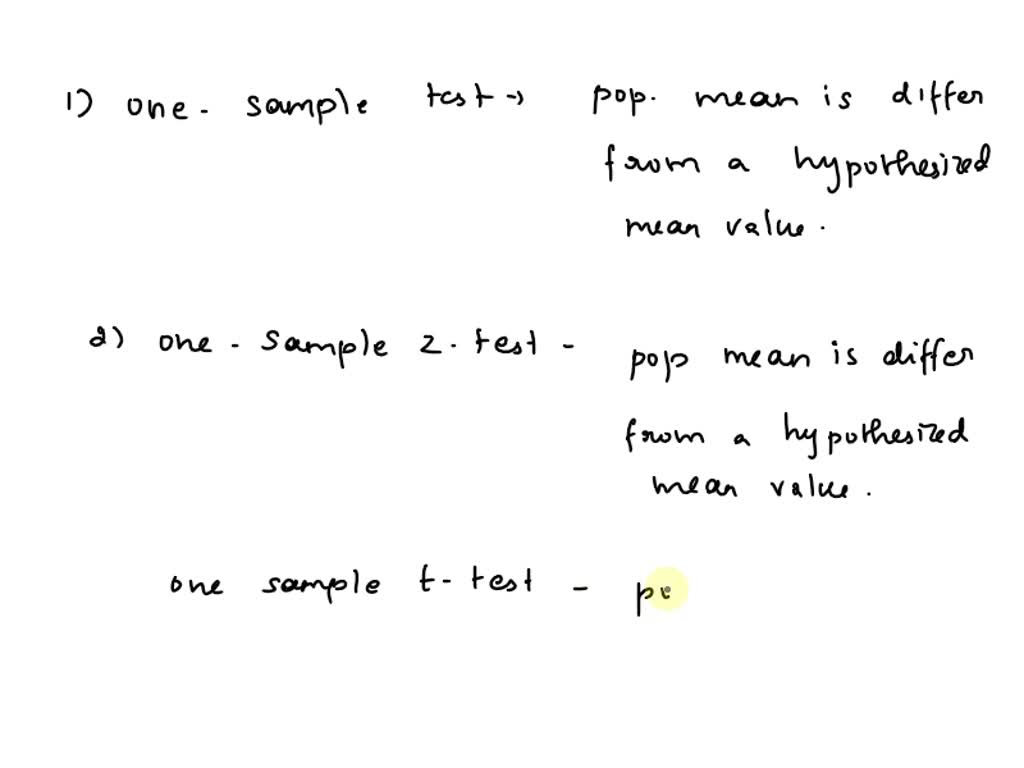 1) one - sample test → pop. mean is differ
from a hypothesized
mean value.
2) one - sample z. test - pop mean is differ
from a hypothesized
mean value.
one sample t - test -